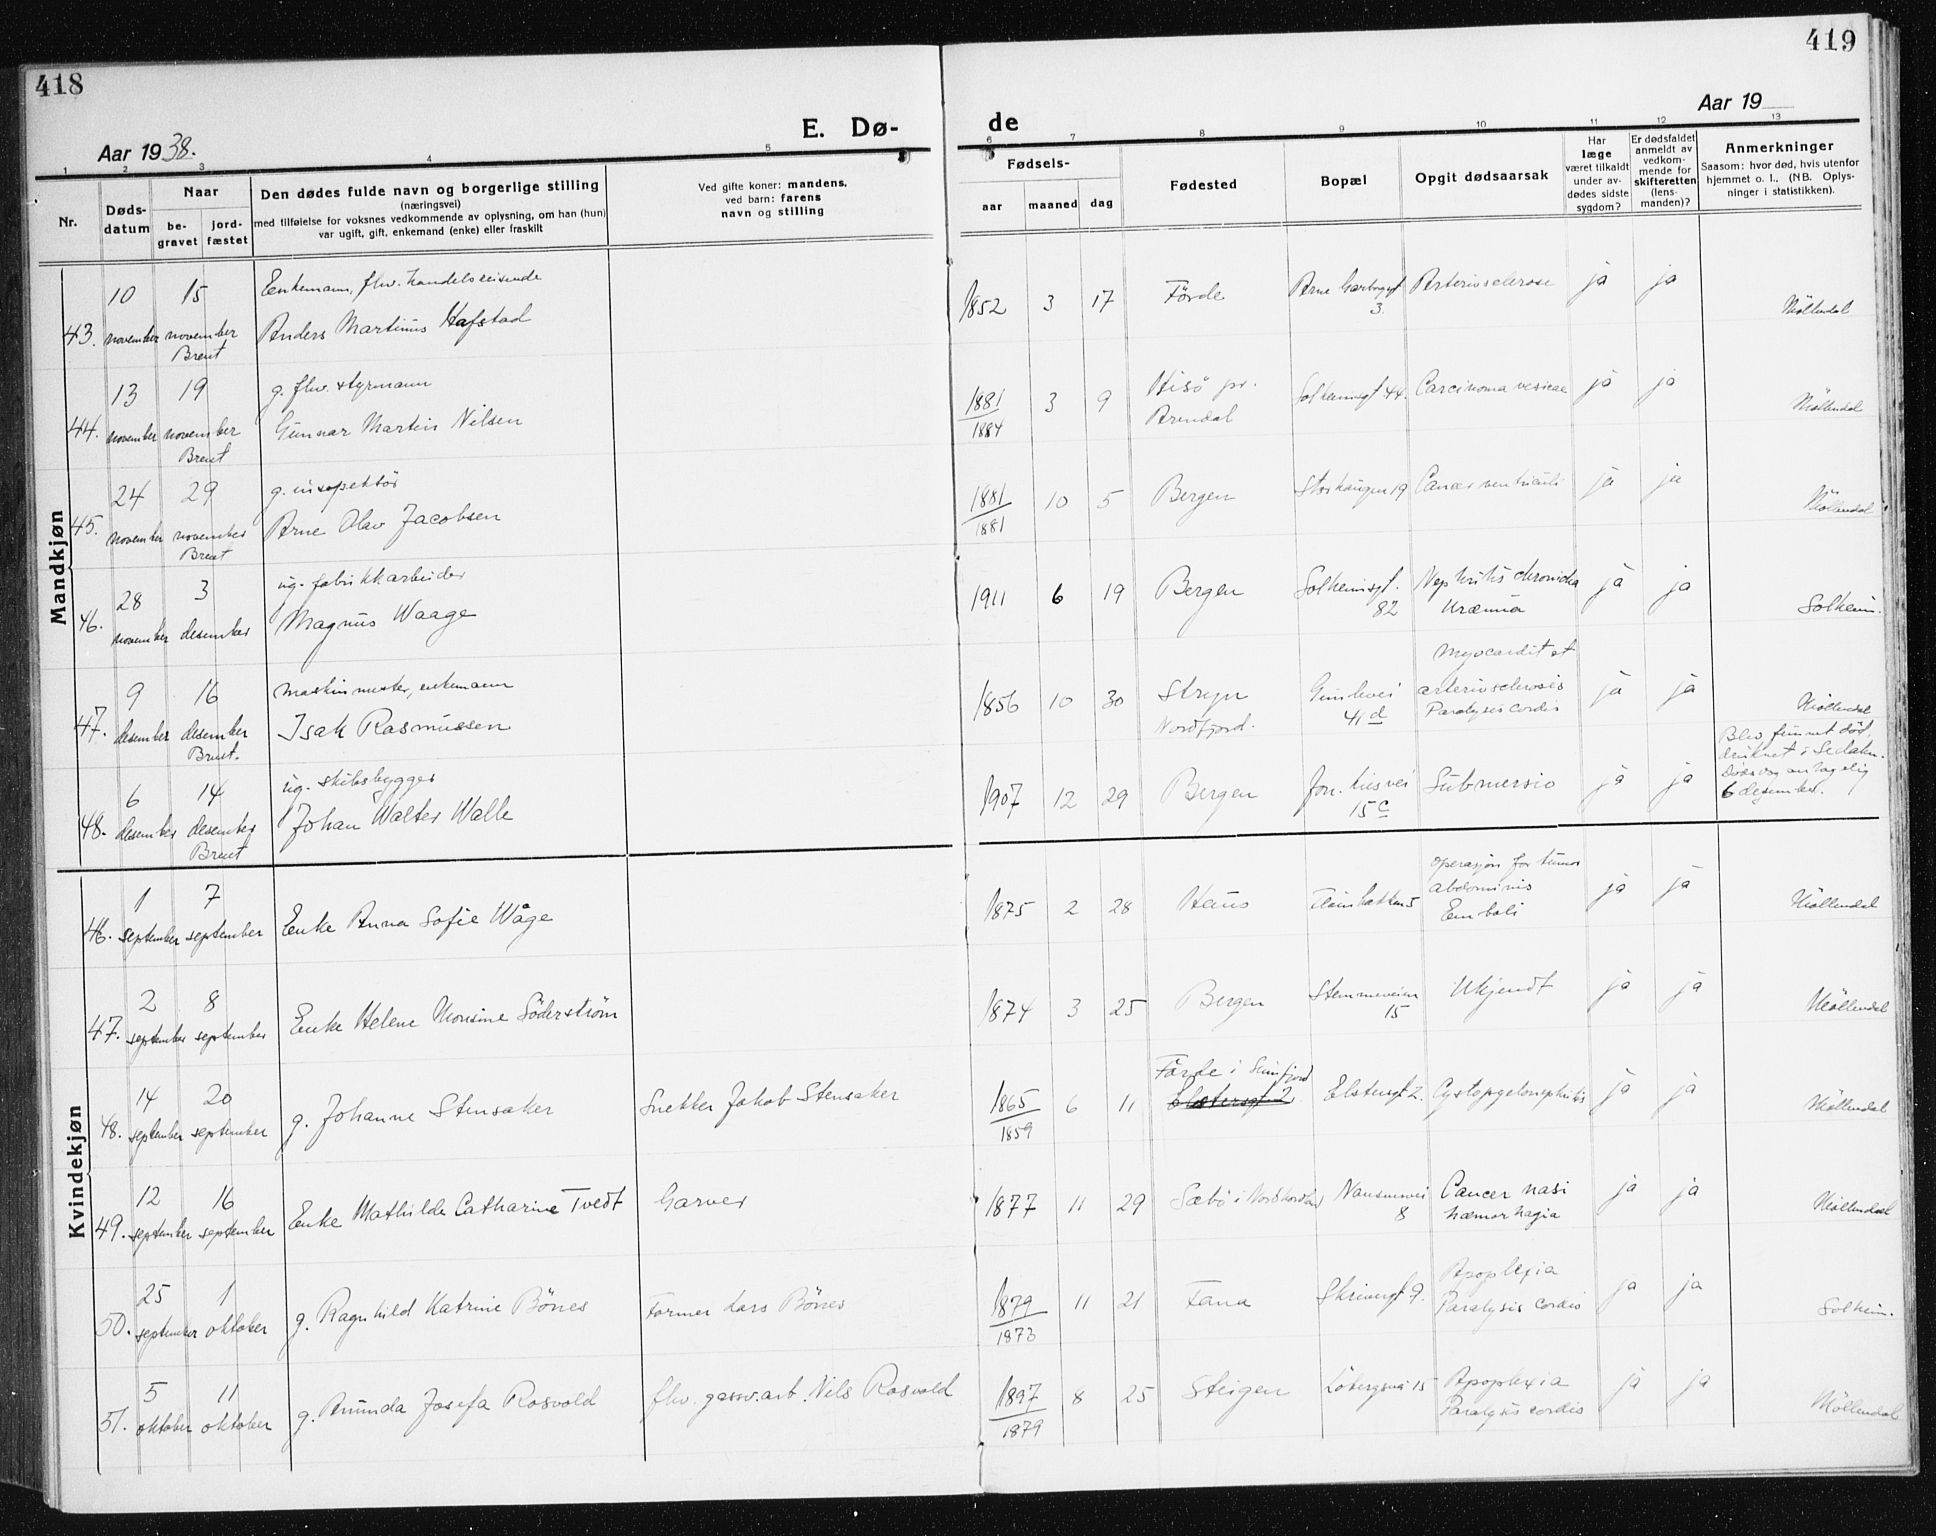 418
Aar 1938.
E. Dø-
1 2 3 4 5
Nr.
Døds-
datum
Naar
be-
gravet
jord-
fæstet
Den dødes fulde navn og borgerlige stilling
(næringsvei)
med tilføielse for voksnes vedkommende av oplysning, om han (hun)
var ugift, gift, enkemand (enke) eller fraskilt
Ved gifte koner: mandens,
ved barn: farens
navn og stilling
Mandkjøn
43. 10 november 15 november Brent
Enkemann, fhv. handelsreisende
Anders Martinus Hafstad
44. 13 november 19 november Brent
g. fhv. styrmann
Gunnar Martin Nilsen
45. 24 november 29 november Brent
g. inspektör
Arne Olav Jacobsen
46. 28 november 3 desember
ug. fabrikkarbeider
Magnus Waage
47. 9 desember 16 desember Brent.
maskinmester, enkemann
Isak Rasmussen
48. 6 desember 14 desember Brent
ug. skibsbygger
Johan Walter Walle
Kvindekjøn
46. 1 september 7 september
Enke Anna Sofie Wåge
47. 2 september 8 september
Enke Helene Monsine Söderström
48. 14 september 20 september
g. Johanne Stensaker
Snekker Jakob Stensaker
49. 12 september 16 september
Enke Mathilde Catharine Tvedt
Garver
50. 25 september 1 oktober
g. Ragnhild Katrine Bönes
Former Lars Bönes
51. 5 oktober 11 oktober
g. Amunda Josefa Rosvold
fhv. gassv.arb. Nils Rosvold
419
de
Aar 19
6 7 8 9 10 11 12 13
Fødsels-
aar maaned dag
Fødested
Bopæl
Opgit dødsaarsak
Har
læge
været tilkaldt
under av-
dødes sidste
sygdom?
Er dødsfaldet
anmeldt av
vedkom-
mende for
skifteretten
(lens-
manden)?
Anmerkninger
Saasom: hvor død, hvis utenfor
hjemmet o. l., (NB. Oplys-
ninger i statistikken).
1852 3 17 Förde Arne Garborgsgt 3. Arteriosclerose ja ja Möllendal
1881/1884 3 9 Hisö pr. Arendal Solheimsgt 44. Carcinoma vesicae ja ja Möllendal
1881/1881 10 5 Bergen Storhaugen 19 Cancer ventriculi ja ja Möllendal
1911 6 19 Bergen Solheimsgt. 82 Nephritis chronicha Uræmia ja ja Solheim.
1856 10 30 Stryn Nordfjord. 41 d Myocardit et arteriosclerosis Paralysis cordis ja ja Möllendal
1907 12 29 Bergen 15 c Submersio ja ja
Blev funnet död,
druknet i
Dödsdag antagelig
6 desember.
1875 2 28 Haus 5 operasjon for tumor abdominis Emboli ja ja Möllendal
1874 3 25 Bergen Stemmeveien 15 Ukjendt ja ja Möllendal
1865/1859 6 11 Förde i Sunnfjord Elstersgt 2. Elstersgt 2. Cystopyelonephritis ja ja Möllendal
1877 11 29 Sæbö i Nordhordland Nansensvei 8 Cancer nasi hæmorhagia ja ja Möllendal
1879/1873 11 21 Fana 9. Apoplexia Paralysis cordis ja ja Solheim.
1897/1879 8 25 Steigen Löbergsvei 15 Apoplexia Paralysis cordis ja ja Möllendal